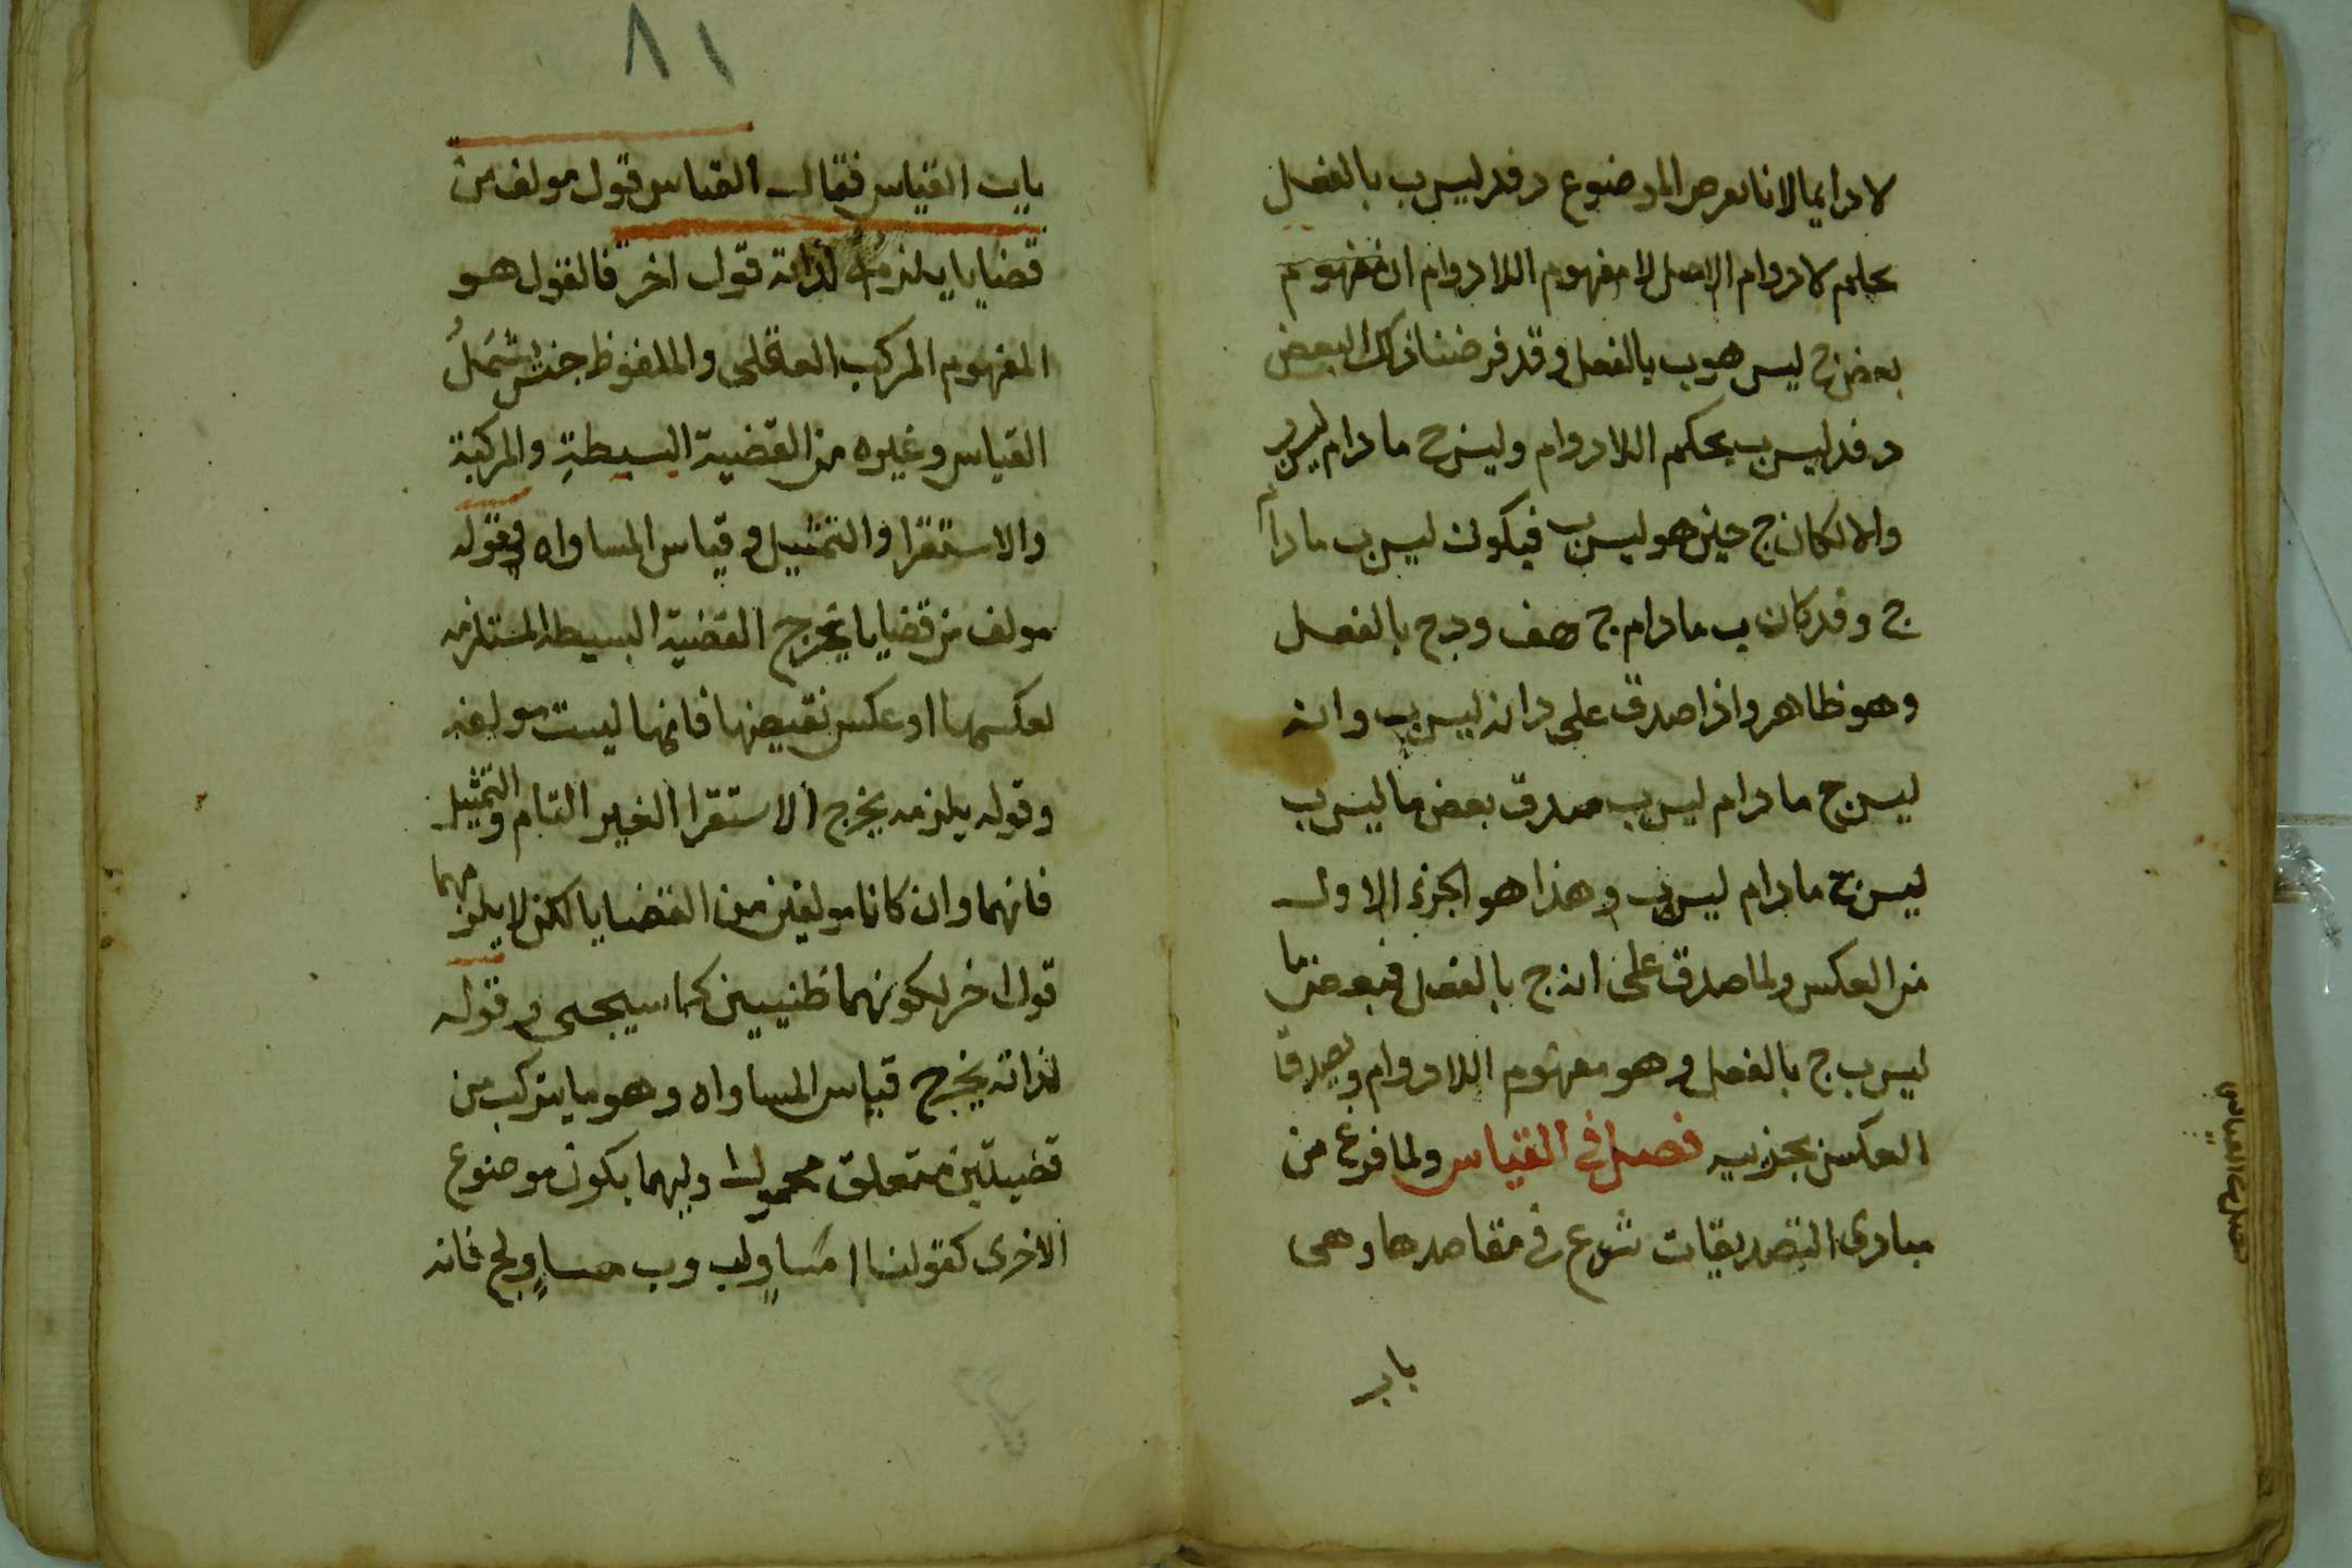 لا دايما لانا نفرض الموضوع د فد ليس ب بالفعل
بحكم لا دوام الاصل لا مفهوم اللا دوام ان مفهوم
بعض ج ليس هو ب بالفعل و قد فرضنا ذلك البعض
د فد ليس ب بحكم اللا دوام وليس ج ما دام ليس ب
والا لكان ج حين هو ليس ب فيكون ليس ب ما دام
ج و قد كان ب ما دام ج هف و د ج بالفعل
وهو ظاهر واذا صدق على د انه ليس ب وانه
ليس ج ما دام ليس ب صدق بعض ما ليس ب
ليس ج ما دام ليس ب وهذا هو الجزء الاول
من العكس ولما صدق على انه ج بالفعل فبعض ما
ليس ب ج بالفعل وهو مفهوم اللا دوام و يصدق
العكس بجزييه فصل في القياس ولما فرغ من
مبادى التصديقات شرع في مقاصدها وهى
باب
فصل في القياس
٨١
باب القياس فقال القياس قول مولف من
قضايا يلزمه لذاته قول اخر فالقول هو
المفهوم المركب العقلى والملفوظ جنس يشمل
القياس وغيره من القضية البسيطة والمركبة
والاستقرا والتمثيل و قياس المساواه وقوله
مولف من قضايا يخرج القضية البسيطه المستلزمه
لعكسها او عكس نقيضها فانها ليست مولفه
وقوله يلزمه يخرج الاستقرا الغير التام والتمثيل
فانهما وان كانا مولفين من القضايا لكن لا يلزمهما
قول اخر لكونهما ظنيين كما سيجى و قوله
لذاته يخرج قياس المساواه وهو ما يتركب من
قضيتين متعلق محمول اوليهما يكون موضوع
الاخرى كقولنا ا مساوٍ لب وب مساوٍ لج فانه